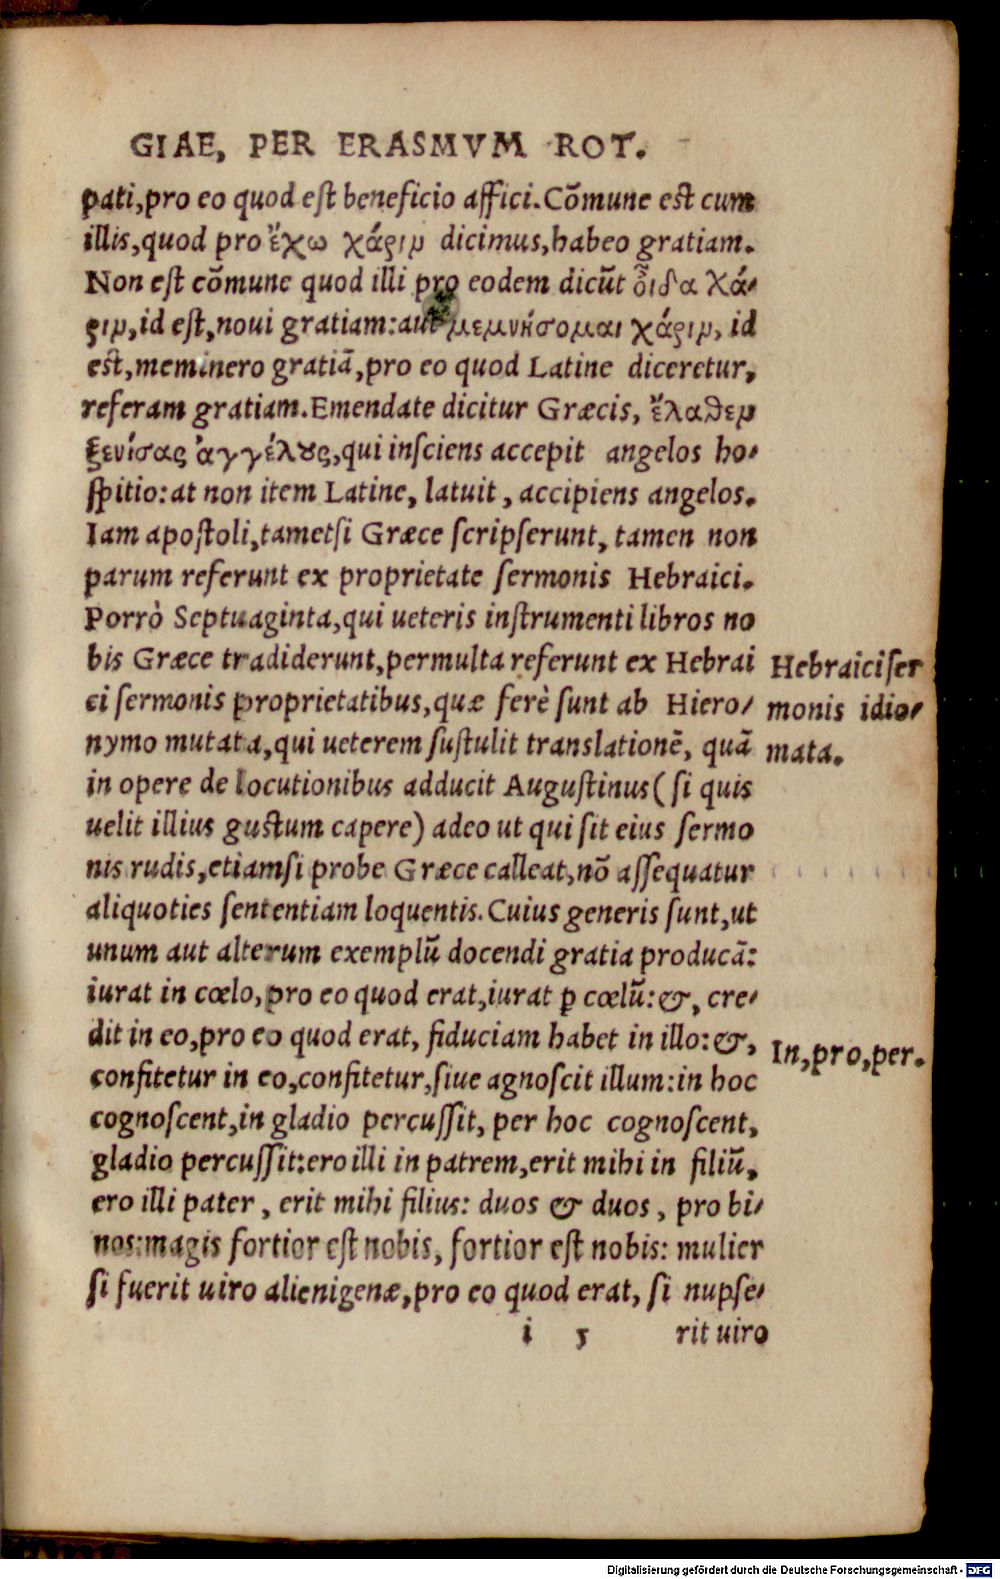 GIAE, PER ERASMVM ROT.
pati,pro eo quod est beneficio affici.Cōmune est cum
illis,quod pro ἔχω χάριν dicimus,habeo gratiam.
Non est cōmune quod illi pro eodem dicūt οἶδα χά-
ριν,id est,noui gratiam:aut μεμνήσομαι χάριν, id
est,meminero gratiā,pro eo quod Latine diceretur,
referam gratiam.Emendate dicitur Græcis, ἔλαθεν
ξενίσας ἀγγέλους,qui insciens accepit angelos ho-
spitio:at non item Latine, latuit, accipiens angelos.
Iam apostoli,tametsi Græce scripserunt, tamen non
parum referunt ex proprietate sermonis Hebraici.
Porrò Septuaginta,qui ueteris instrumenti libros no
bis Græce tradiderunt,permulta referunt ex Hebrai
ci sermonis proprietatibus,quæ ferè sunt ab Hiero-
nymo mutata,qui ueterem sustulit translationē, quā
in opere de locutionibus adducit Augustinus (si quis
uelit illius gustum capere) adeo ut qui sit eius sermo
nis rudis,etiamsi probe Græce calleat,nō assequatur
aliquoties sententiam loquentis.Cuius generis sunt,ut
unum aut alterum exemplū docendi gratia producā:
iurat in cœlo,pro eo quod erat,iurat ꝑ cœlū:&, cre-
dit in eo,pro eo quod erat, fiduciam habet in illo:&,
confitetur in eo,confitetur,siue agnoscit illum:in hoc
cognoscent,in gladio percussit, per hoc cognoscent,
gladio percussit:ero illi in patrem,erit mihi in filiū,
ero illi pater, erit mihi filius: duos & duos, pro bi-
nos:magis fortior est nobis, fortior est nobis: mulier
si fuerit uiro alienigenæ,pro eo quod erat, si nupse-
i 5 rit uiro
Hebraici ser
monis idio-
mata.
In,pro,per.
Digitalisierung gefördert durch die Deutsche Forschungsgemeinschaft - DFG